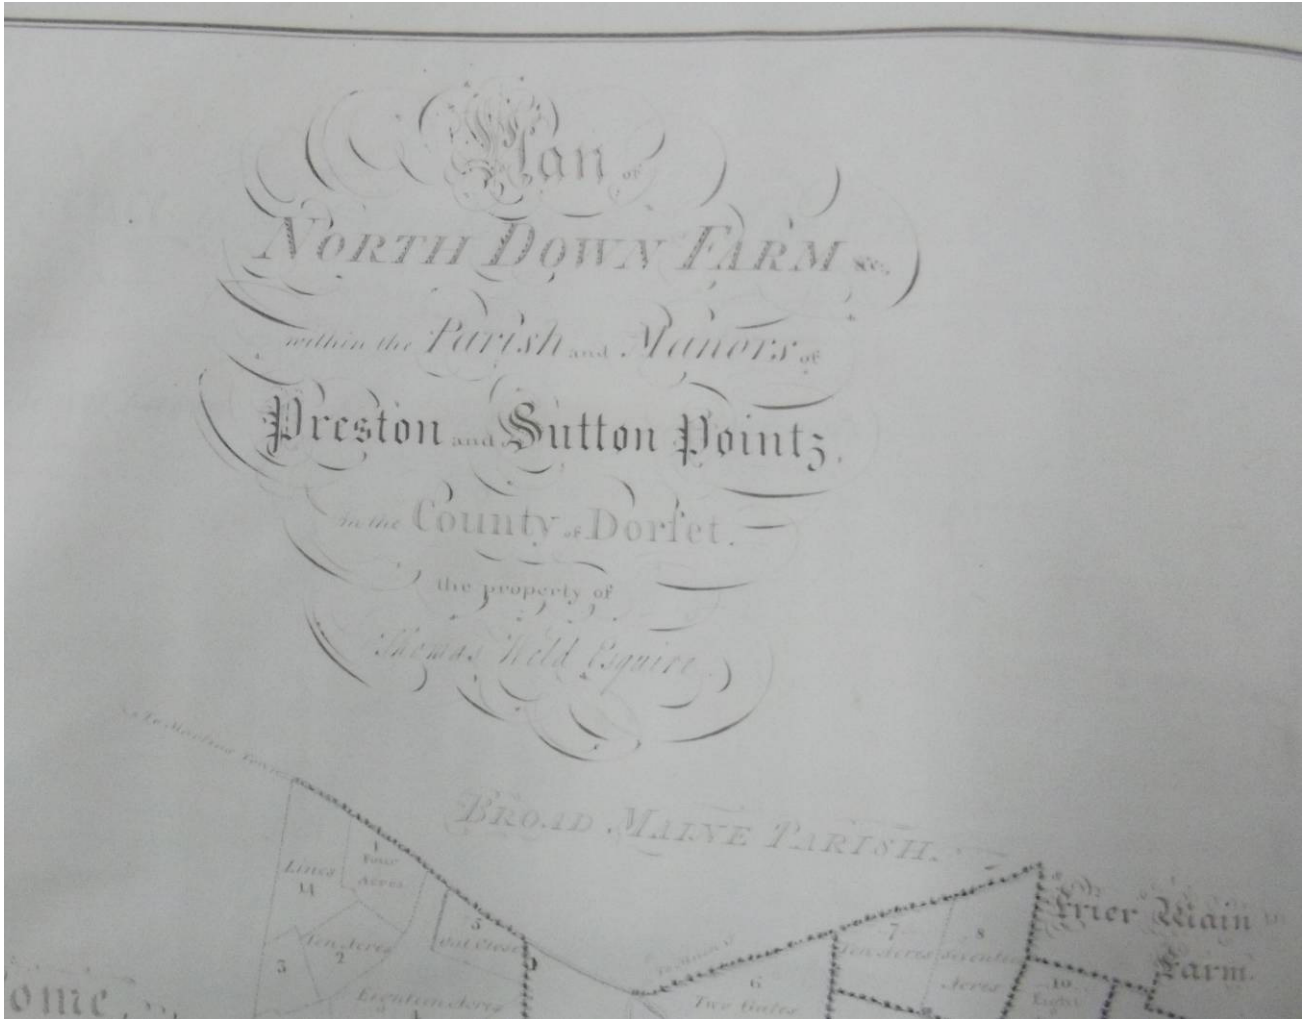 Plan of
NORTH DOWN FARM &c.
within the Parish and Manors of
Preston and Sutton Pointz.
In the County of Dorſet.
the property of
Thomas Weld Esquire.
To Town
BROAD MAINE PARISH.
1
Four
Acres
Lines
14
Ten Acres
2
3
5
Eighteen Acres
6
Two Gates
7
Ten Acres
8
Seventeen
Acres
10
Eight
Frier Main
Farm.